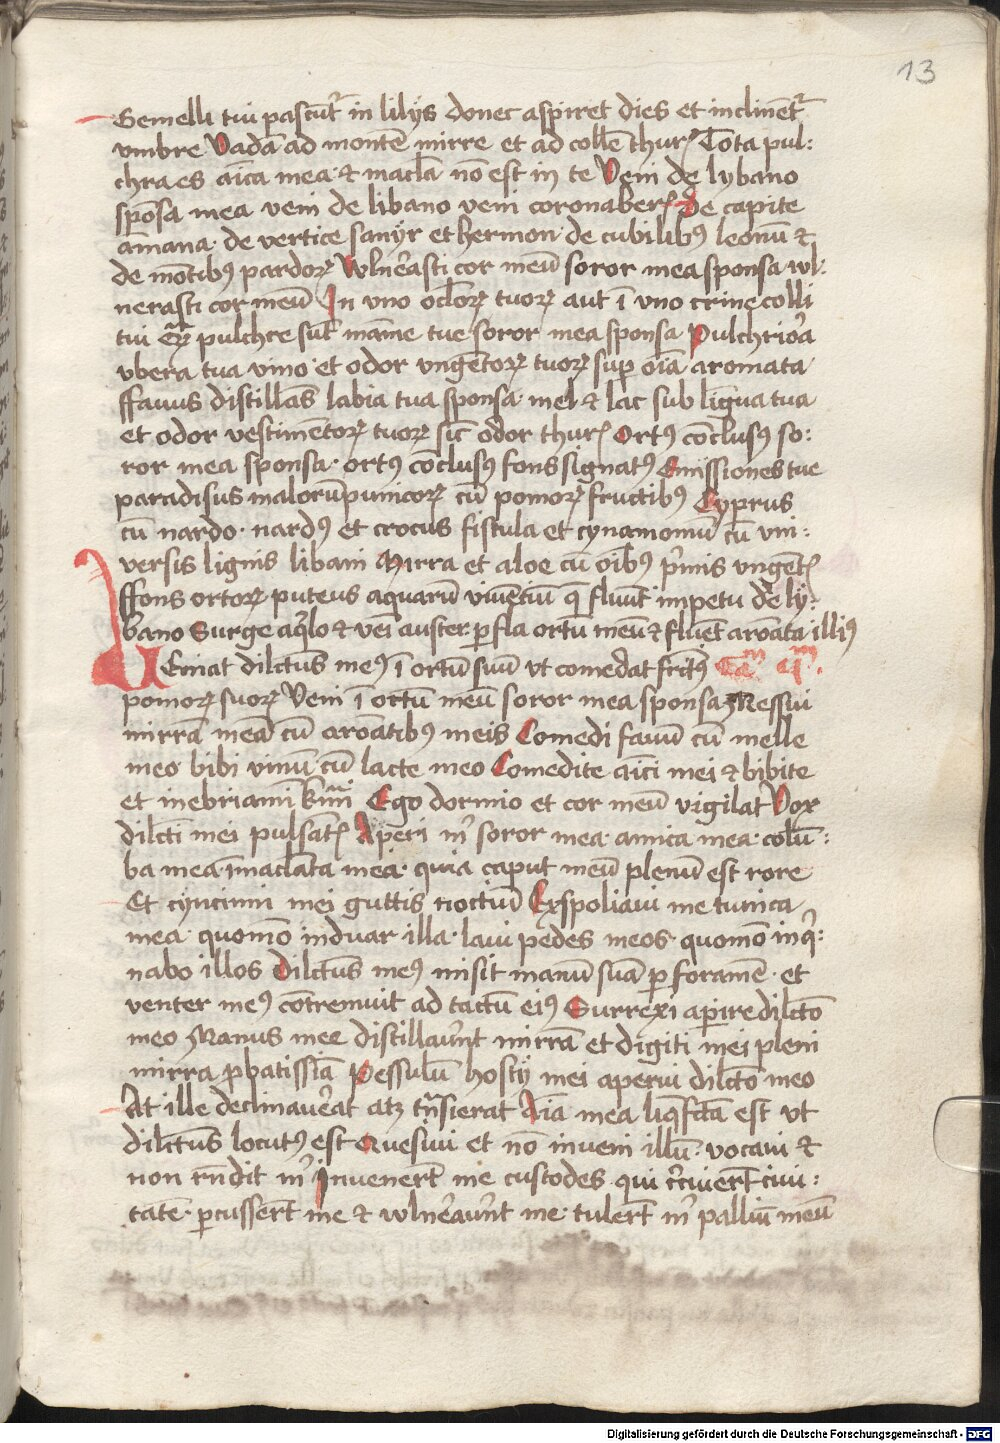 13
Gemelli tui pascūt̄ in lilijs donec aspiret dies et inclinēt̄
vmbre Vadā ad montē mirre et ad collē thurꝭ Tota pul:
chra es aīca mea · ⁊ macl̄a nō est in te Veni de lybano
spōsa mea veni de libano veni coronaberꝭ De capite
amana · de vertice sanyr et hermon · de cubilibꝰ leonū ⁊
de mōtibꝰ pardoꝝ Wln̄erasti cor meū soror mea sponsa wl:
nerasti cor meū In vno ocl̄oꝝ tuoꝝ aut ī vno crine colli
tui pulchre sūt māme tue soror mea sponsa Pulchriōa
vbera tua vino · et odor vngētoꝝ tuoꝝ suꝑ oīa aromata
ffauus distillās labia tua sponsa · mel ⁊ lac sub lingua tua
et odor vestimētoꝝ tuoꝝ sic̄ odor thurꝭ Ortꝰ cōclusꝰ so:
ror mea sponsa · ortꝰ cōclusꝰ fons signatꝰ Emissiones tue
paradisus malorū punicoꝝ cū pomoꝝ fructibꝰ Cyprus
cū nardo · nardꝰ et crocus fistula et cynamomū cū vni:
versis lignis libani Mirra et aloe cū oībꝰ p̄mis vngētꝭ
ffons ortoꝝ puteus aquarū viuētiū q̄ fluūt impetu de ly:
bano Surge aq̄lo ⁊ vēi auster ꝑfla ortū meū ⁊ fluēt aroāta illiꝰ
UEniat dilc̄tus meꝰ ī ortū suū vt comedat fr̄tꝰ Caͫ qͫ.
pomoꝝ suoꝝ Veni ī ortū meū soror mea sponsa Messui
mirrā meā cū aroātibꝰ meis Comedi fauū cū melle
meo bibi vinū cū lacte meo Comedite aīci mei ⁊ bibite
et inebriaminī kr̄mi Ego dormio et cor meū vigilat Vox
dilc̄ti mei pulsātꝭ Aperi m̄ soror mea · amica mea · colū:
ba mea īmacl̄ata mea · quia caput meū plenū est rore
Et cyncinni mei guttis noctiū Exspoliaui me tunica
mea · quomō induar illa · laui pedes meos · quomō inq̄:
nabo illos Dilc̄tus meꝰ misit manū suā ꝑ foramē · et
venter meꝰ cōtremuit ad tactū eiꝰ Surrexi aperire dilc̄to
meo Manus mee distillauer̄nt mirrā et digiti mei pleni
mirra ꝓbatissīa Pessulū hostij mei aperui dilc̄to meo
At ille declinauerat atꝫ trn̄sierat Aīa mea liq̄fc̄ta est vt
dilc̄tus locutꝰ est Quesiui et nō inueni illū · vocaui ⁊
non rn̄dit m̄ Inuenerūt me custodes qui c̄cuierūt ciui:
tatē · ꝑcusserūt me ⁊ wln̄erauer̄nt me · tulerūt m̄ palliū meū
Digitalisierung gefördert durch die Deutsche Forschungsgemeinschaft - DFG